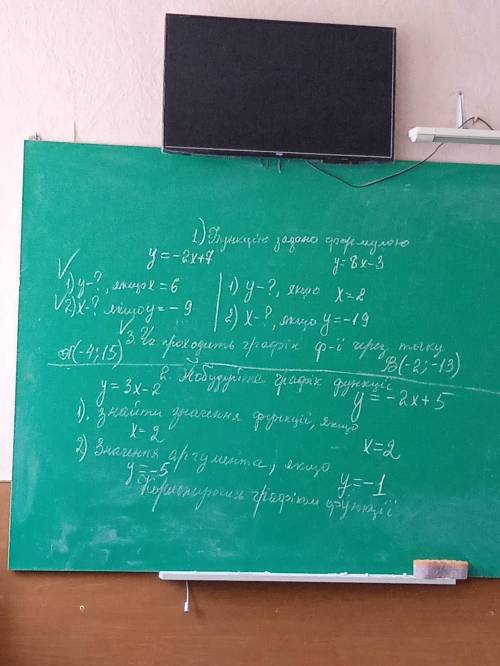 1) Функцію задано формулою
y = -2x+7 y = 8x-3
1) y-?, якщо x = 6 1) y-?, якщо x = 2
2) x-? якщо y = -9 2) x-?, якщо y = -19
3. Чи проходить графік ф-ії через точку
A(-4; 15) B(-2; -13)
2. Побудуйте графік функції
y = 3x-2 y = -2x+5
1). знайти значення функції, якщо
x = 2 x = 2
2) Значення аргумента, якщо
y = -5 y = -1
Користуючись графіком функції